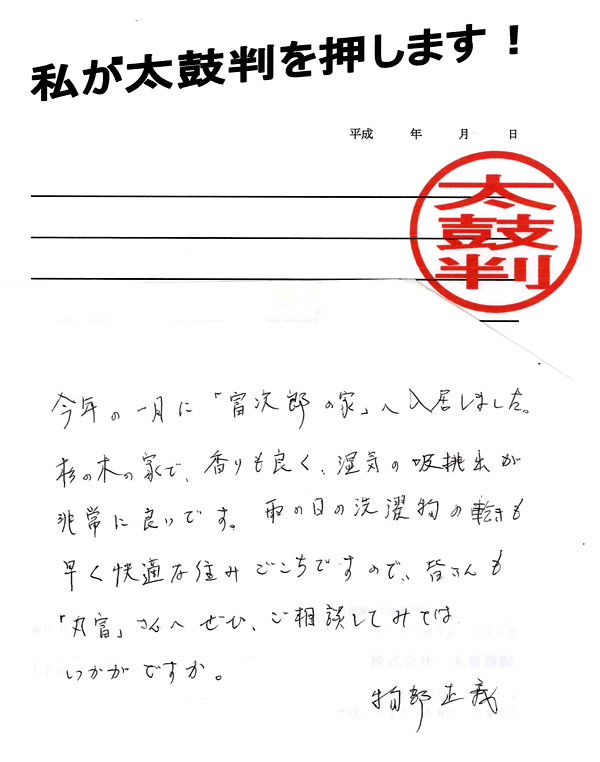 私が太鼓判を押します！
平成　年　月　日
太
鼓
判
今年の一月に「富次郎の家」へ入居しました。
杉の木の家で、香りも良く、湿気の吸排出が
非常に良いです。雨の日の洗濯物の乾きも
早く快適な住みごこちですので、皆さんも
「丸富」さんへぜひ、ご相談してみては
いかがですか。